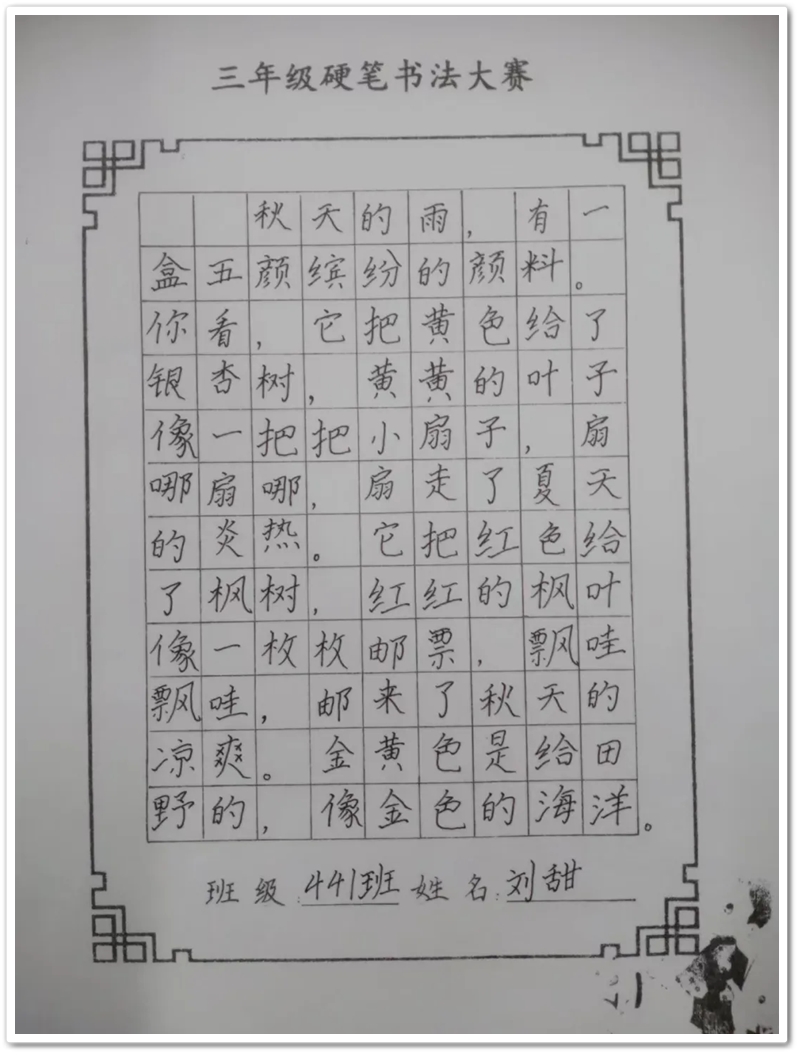 三年级硬笔书法大赛
秋天的雨，有一
盒五颜缤纷的颜料。
你看，它把黄色给了
银杏树，黄黄的叶子
像一把把小扇子，扇
哪扇哪，扇走了夏天
的炎热。它把红色给
了枫树，红红的枫叶
像一枚枚邮票，飘哇
飘哇，邮来了秋天的
凉爽。金黄色是给田
野的，像金色的海洋。
班级:441班 姓名:刘甜